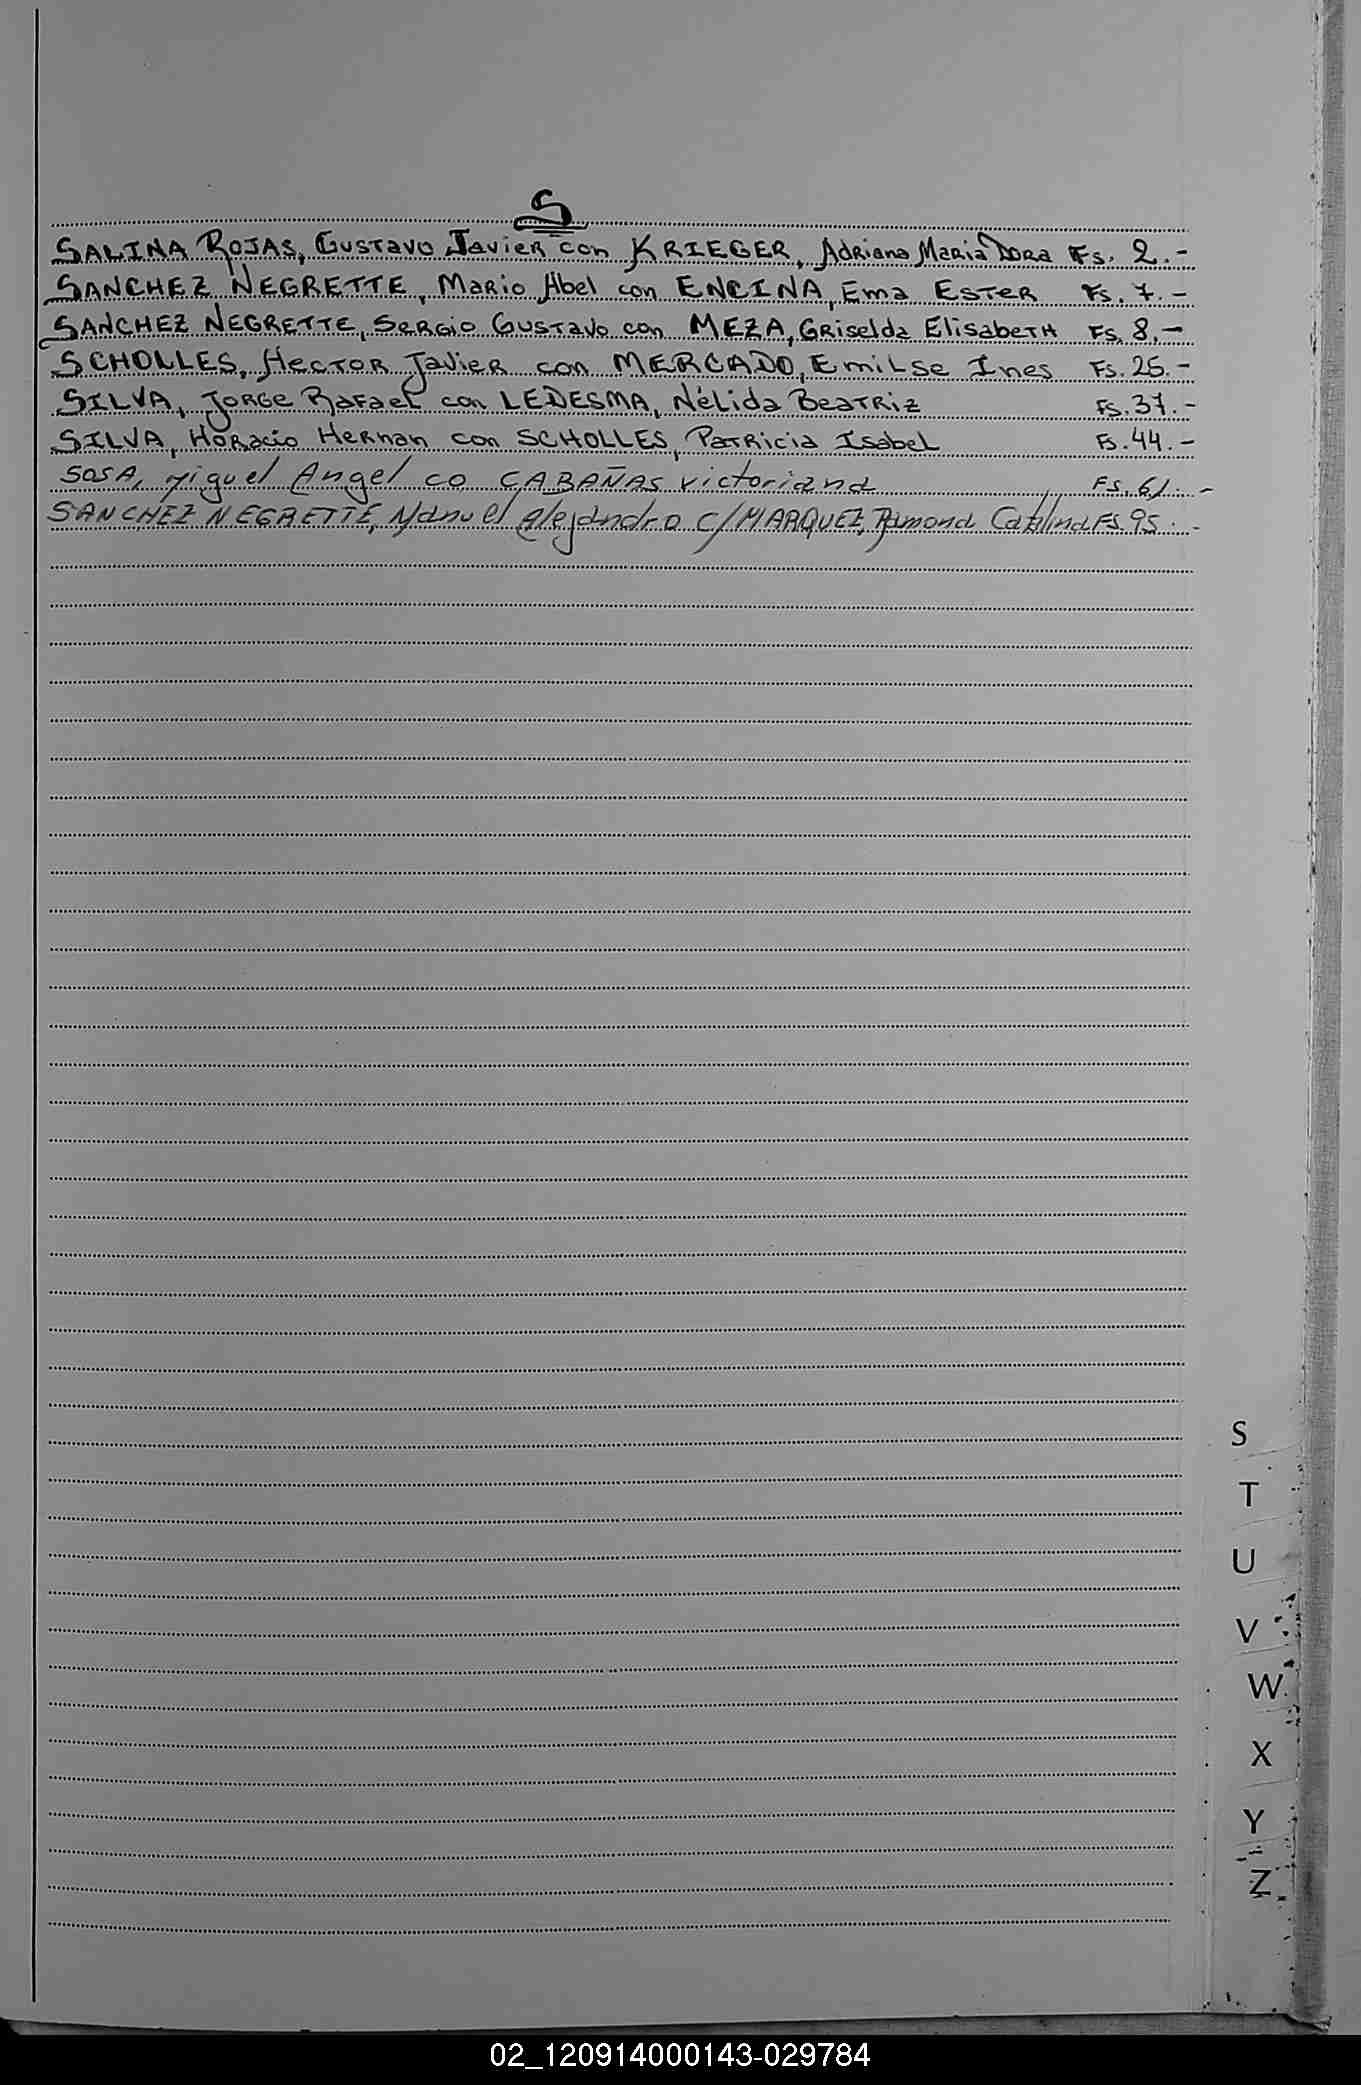 S
SALINA ROJAS, Gustavo Javier con KRIEGER, Adriana Maria Dora Fs. 2.-
SANCHEZ NEGRETTE, Mario Abel con ENCINA, Ema Ester Fs. 7.-
SANCHEZ NEGRETTE, Sergio Gustavo con MEZA, Griselda Elisabeth Fs. 8.-
SCHOLLES, Hector Javier con MERCADO, Emilse Ines Fs. 25.-
SILVA, Jorge Rafael con LEDESMA, Nélida Beatriz Fs. 37.-
SILVA, Horacio Hernan con SCHOLLES, Patricia Isabel Fs. 44.-
SOSA, Miguel Angel co CABAÑAS victoriana Fs. 61.-
SANCHEZ NEGRETTE, Manuel Alejandro c/MARQUEZ, Ramona Catalina Fs. 95.-
S
T
U
V
W
X
Y
Z
02_120914000143-029784